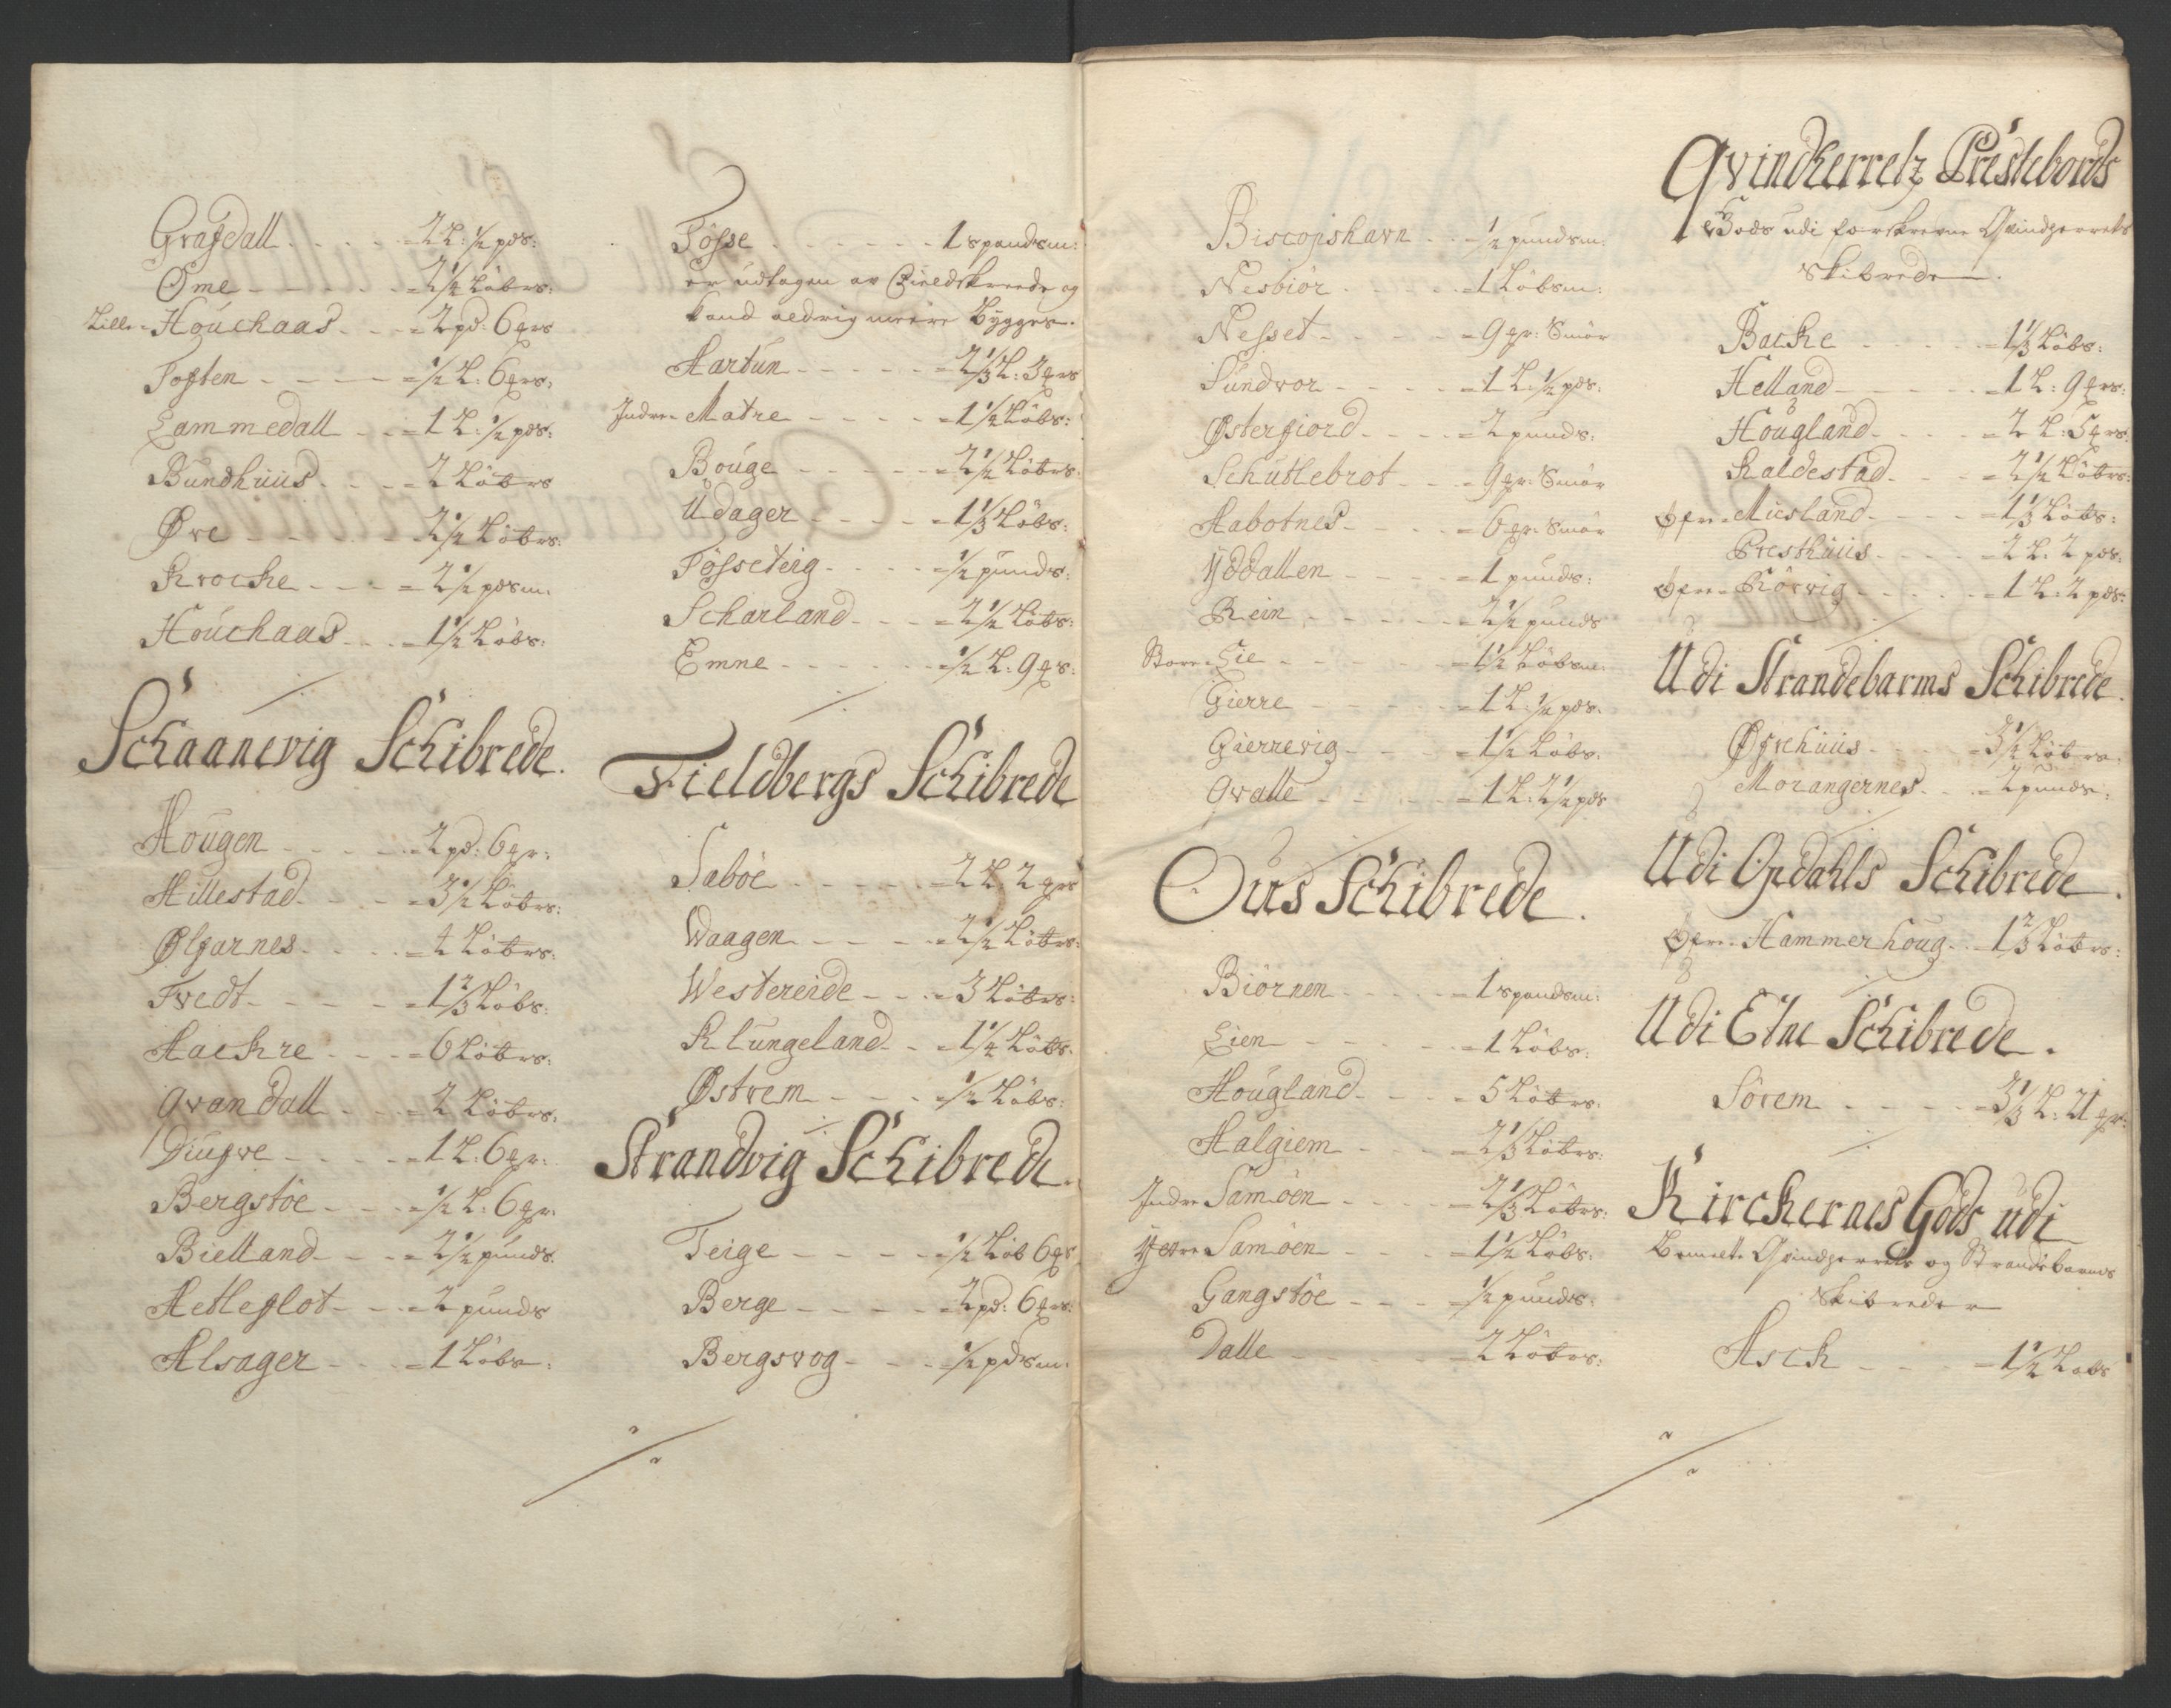 Grafdall - - - = 2 L: ½ pds:
Ome - - - - = 2½ Løbrs:
Lille = Houckaas - - = 2 pd: 6 grs
Toften - - - - = ½ L: 6 grs:
Lammedall - - = 1 L: ½ pds:
Bundhuus - - = 2 Løbrs
Øre - - - - = 2½ Løbrs:
Krocke - - - = 2½ pdsm:
Houckaas - - = 1½ Løbs:
Schaanevig Schibrede.
Hougen - - - = 2 pd: 6 gr:
Hillestad - - = 3½ Løbrs:
Ølfarnes - - - = 4 Løbrs:
Tvedt - - - - = 1⅔ Løbs:
Aackre - - - = 6 Løbrs:
Qvandall - - = 2 Løbrs:
Diugve - - - = 1 L: 6 gr:
Bergstøe - - - = ½ L: 6 gr:
Bielland - - - = 2½ punds:
Aetleflot - - - = 2 punds
Alsager - - - = 1 Løbs:
Fosse - - - - - 1 spandsm:
er udtagen av Fieldskreede og
kand aldrig meere Bygges.
Aartun - - - - = 2⅓ L: 3 grs
Indre = Matre - - - - = 1½ Løbs:
Bouge - - - - = 2½ Løbrs:
Udager - - - - = 1⅓ Løbs:
Fosseteig - - - - ½ punds:
Scharland - - - = 2½ Løbs:
Emne - - - - - = ½ L: 9 grs:
Fieldbergs Schibrede
Saboe - - - - = 2 L 2 grs
Waagen - - - - = 2½ Løbrs:
Westereide - - = 3 Løbrs:
Klungeland - - = 1¼ Løbs:
Østrem - - - - ½ Løbs:
Strandvig Schibrede.
Teige - - - - = ½ Løb 6 grs
Berge - - - - = 2 pd: 6 grs:
Bergsvog - - - - ½ pdsm:
Biscopshavn - - = ½ pundsm:
Nesbiør - - - - = 1 Løbsm:
Nesset - - - - = 9 gr: Smør
Sundvor - - - - = 1 L: ½ pds:
Østerfiord - - - = 2 punds:
Schutlebrot - - - = 9 gr: Smør
Aabotnes - - - - = 6 gr: Smør
Yddallen - - - - = 1 punds:
Rein - - - - - = 2½ punds
Store = Lie - - - - = 1½ Løbsm:
Gierre - - - - = 1 L: ½ pds:
Gierrevig - - - = 1½ Løbs:
Qvalle - - - - = 1 L: 2½ pds
Ous Schibrede.
Biørnen - - - = 1 spandsm:
Lien - - - - = 1 Løbs:
Hougland - - - = 5 Løbrs:
Halgiem - - - = 2⅓ Løbrs:
Indre Samøen - - - = 2⅓ Løbrs:
Yttre Samøen - - - = 1½ Løbs:
Gangstøe - - - = ½ punds:
Dalle - - - - = 2 Løbrs:
Qvindherretz Prestebords
Gods udi forskrevne Qvindherrets
Skibrede.
Backe - - - - = 1⅓ Løbs:
Helland - - - = 1 L: 9 grs:
Hougland - - - = 2 L: 5 grs:
Kaldestad - - - = 2½ Løbrs:
Øfre = Miesland - - - = 1⅓ Løbs:
Presthuus - - - = 2 L: 2 pds:
Øfre = Rørvig - - - = 1 L: 2 pds:
Udi Strandebarms Schibrede.
Øfrehuus - - - = 3½ Løbrs:
Morangernes - - = 2 punds:
Udi Opdahls Schibrede.
Øfre = Hammerhoug - - 1⅔ Løbrs:
Udi Etne Schibrede.
Sørem - - - - = 3⅓ L: 21 gr:
Kirckernes Gods udi
Bemelte Qvindherrets og Strandebarms
Skibreder
Asck - - - - = 1½ Løbs